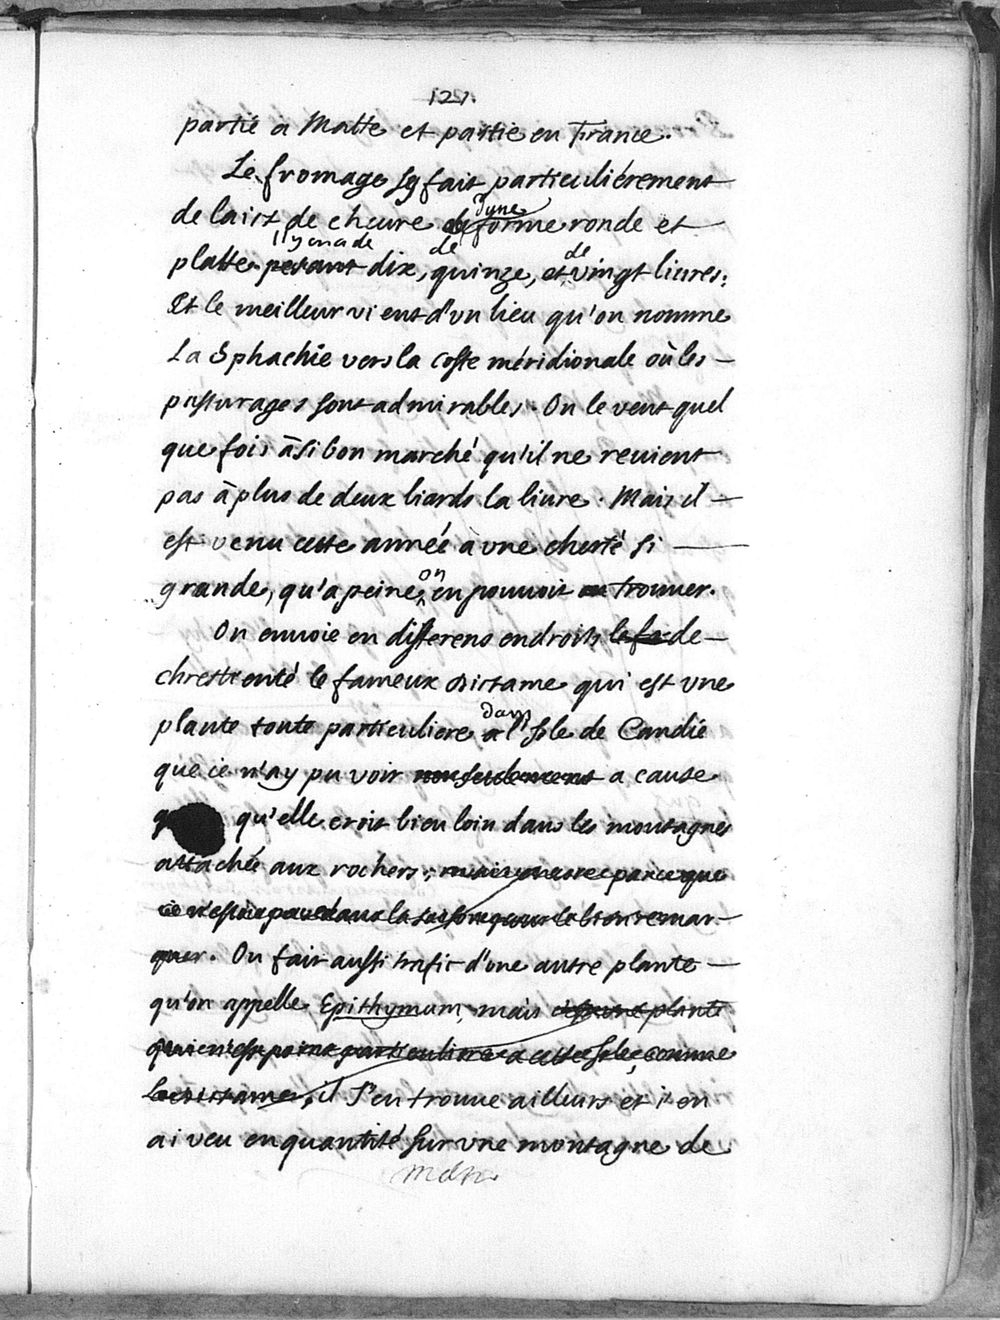 121.
partie a Malte et partie en France.
Le fromage se fait particuliérement
de laict de cheure de d'une forme ronde et
platte. pesant Il y en a de dix, de quinze, et de vingt liures;
Et le meilleur vient d'vn lieu qu'on nomme
La Sphachie vers la coste méridionale où les
pasturages sont admirables. On le vent quel
que fois à si bon marché qu'il ne reuient
pas à plus de deux liards la liure. Mais il
est venu cette année à vne cherté si
grande, qu'a peine on en pouuoit en trouuer.
On enuoie en differens endroits de
chrestienté le fameux dictame qui est vne
plante toute particuliere a dans l'Isle de Candie
que ie n'ay pu voir non seulement a cause
qu'elle croit bien loin dans les montagnes
attachée aux rochers; mais parce que
remar-
quer. On fait aussi trafic d'vne autre plante
qu'on appelle Epithymum, mais plante
qui n'est point particuliere a cette Isle, comme
le dictame, il s'en trouue ailleurs et i'en
ai veu en quantité sur vne montagne de